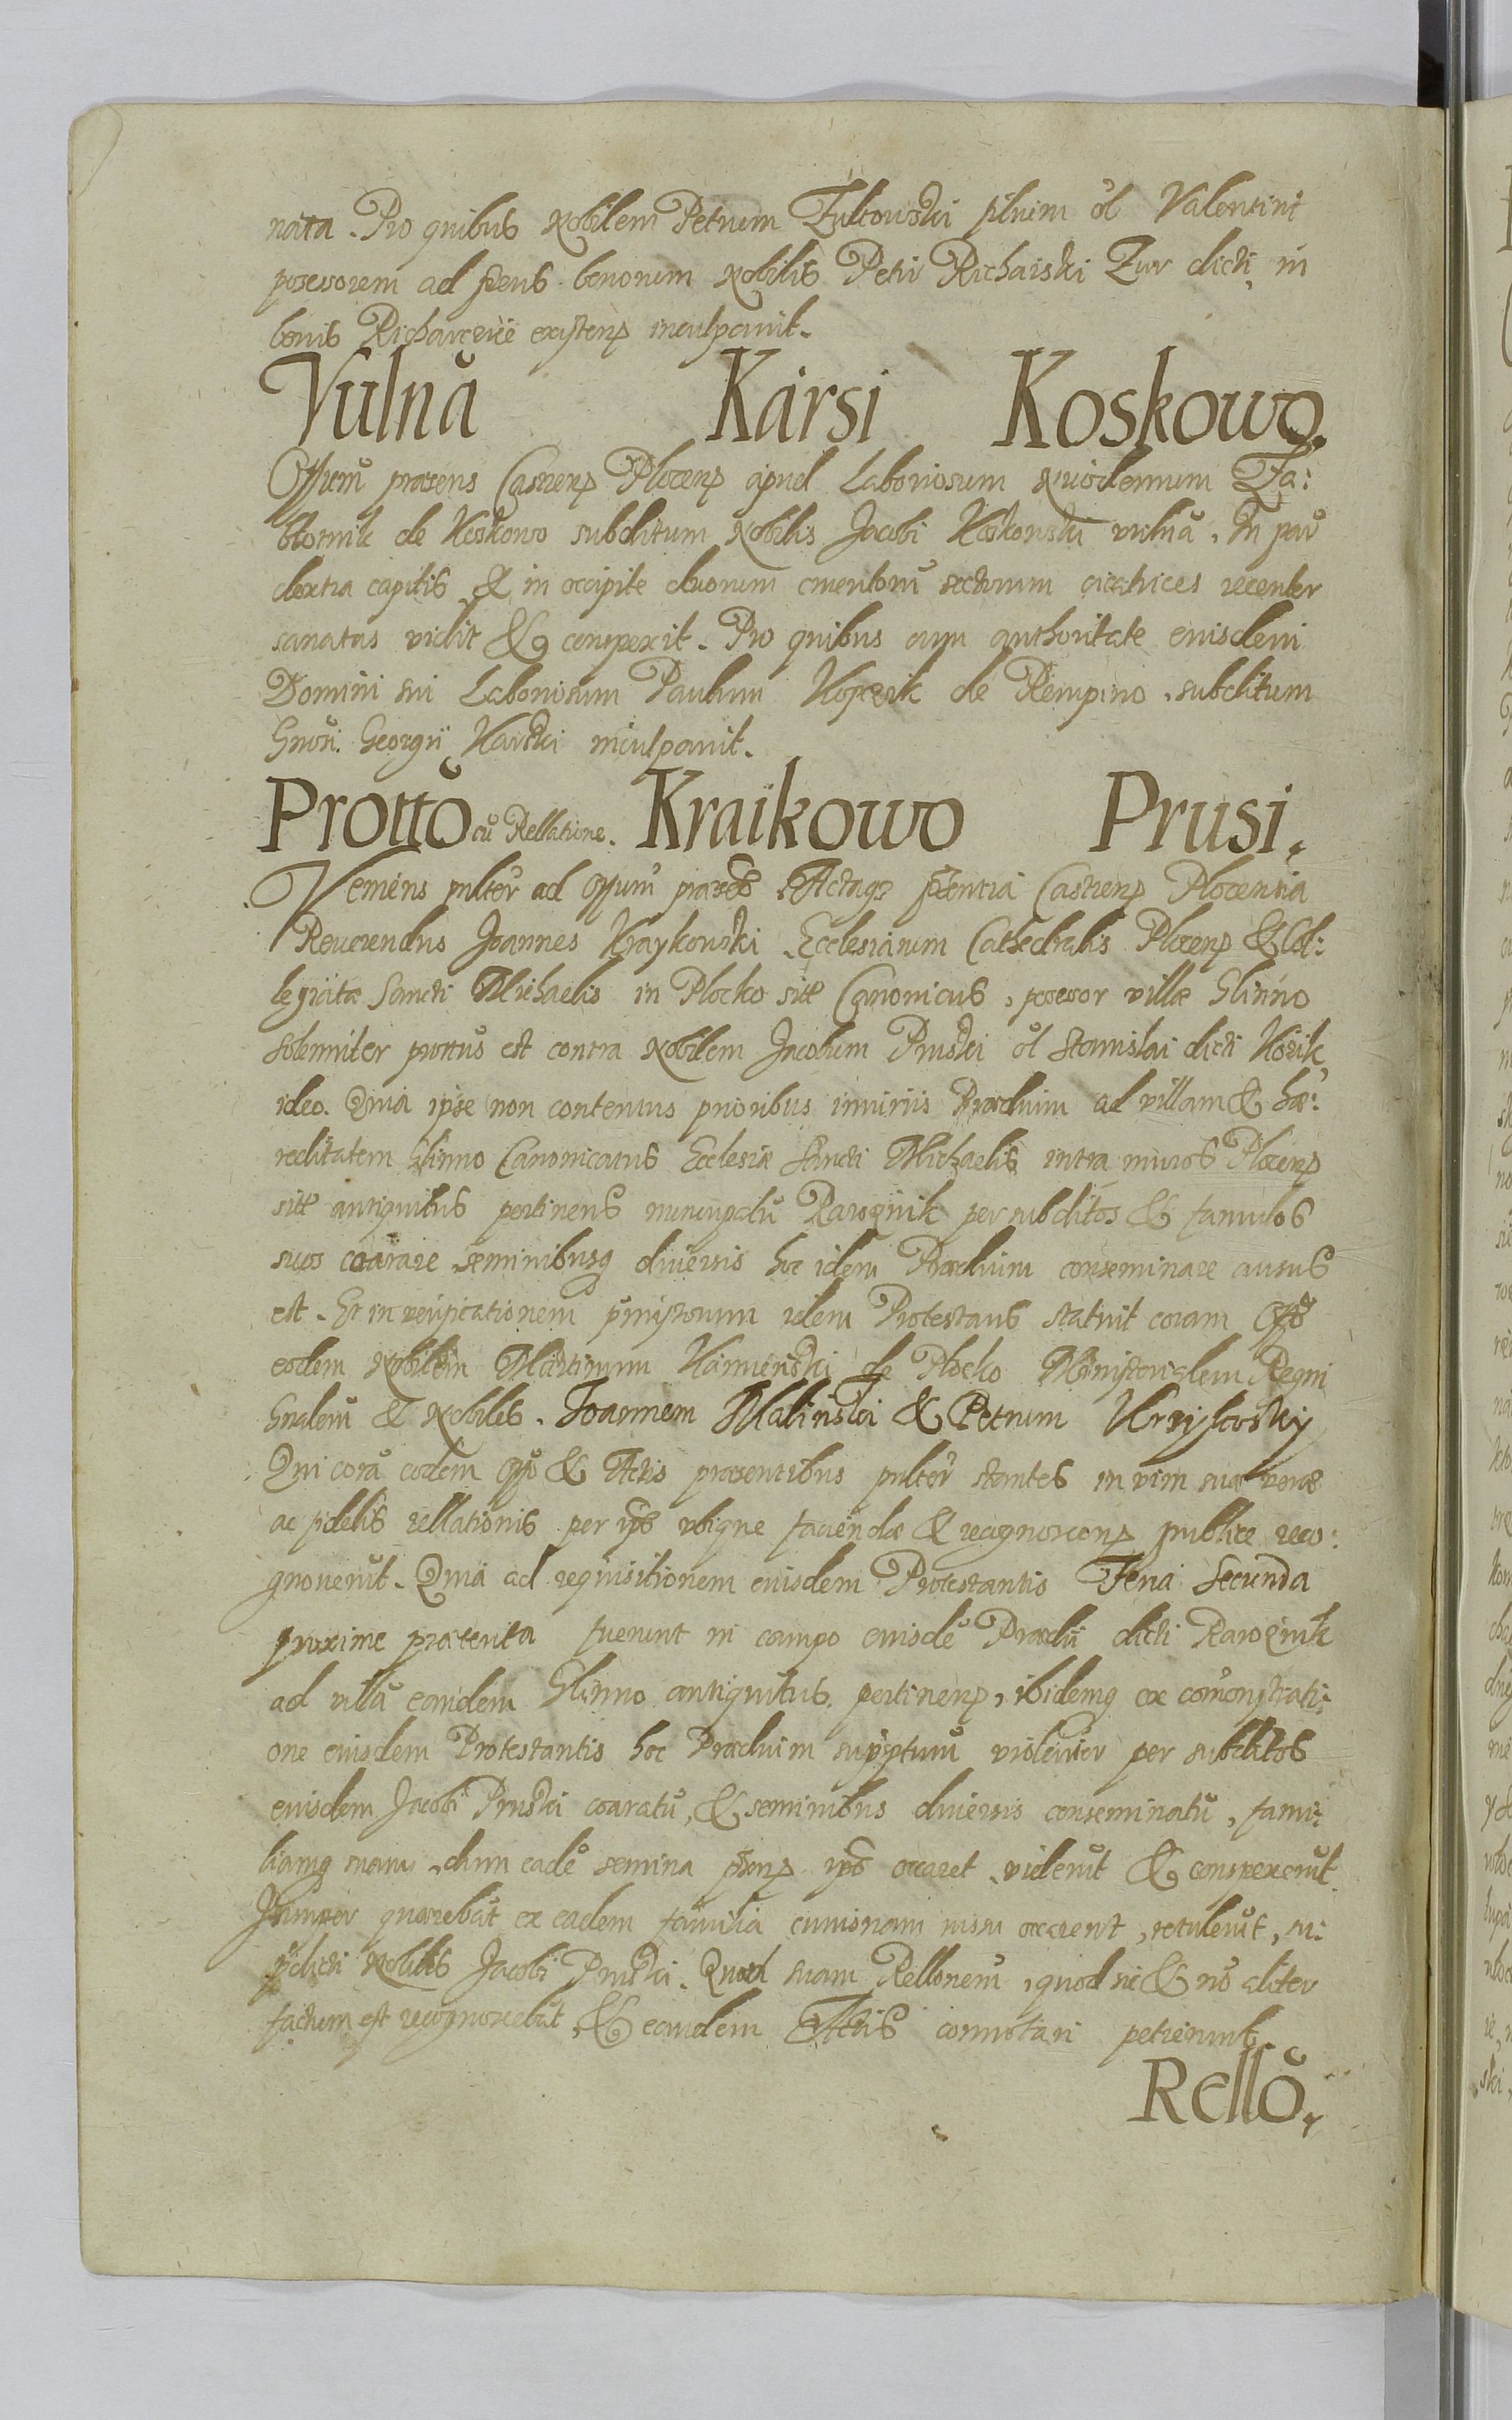 nata. Pro quibus Nobilem Petrum Zultowski filium ol Valentini
possessorem ad ſteus bonorum Nobilis Petri Richarski Zur dicti, in
bonis Richarcicie existenſ inculpauit.
Vulnā Karsi Koskowo.
Offium praesens Castrenſ Plocenſ apud Laboriosum Nicodemum Za:
błotnik de Koskowo subditum Nobilis Jacobi Koskowski vulnā. In parte
dextra capitis & in occipite duorum cruentorū sectorum cicatrices recenter
sanatas vidit & conspexit. Pro quibus cum authoritate eiusdem
Domini sui Laboriosum Paulum Kopczik de Rempino, subditum
Gnosi. Georgii Karski inculpauit.
Prottō cū Rellatione. Kraikowo Prusi.
Veniens pulter ad Offium praesens Actaqz pſentia Castrenſ Plocensia
Reuerendus Joannes Kraykowski Ecclesiarum Cathedralis Plocenſ & Col:
legiatæ Sancti Michaelis in Plocko sitæ Canonicus, possessor villæ Glinno
solemniter prottus est contra Nobilem Jacobum Pruski ol Stanislai dicti Kozik,
ideo. Quia ipse non contentus prioribus iniuriis Prædium ad villam & hæ:
reditatem Glinno Canonicatus Ecclesiæ Sancti Michaelis intra muros Plocenſ
sitæ antiquitus pertinens nuncupatū Rarognik per subditos & famulos
suos coarare seminibusq diuersis hoc idem Prædium conseminare ausus
est. Et in verificationem pmissorum idem Protestans statuit coram Offo
eodem Nobilem Martinum Kamienski de Plocko Ministerialem Regni
Gnalem & Nobiles. Joannem Malinski & Petrum Krzykosky
Qui corā eodem Offo & Actis praesentibus pulter stantes in vim suæ veræ
ac fidelis rellationis per ipos vbique faciendæ & recognoscenſ publice reco:
gnouerūt. Quia ad requisitionem eiusdem Protestantis Feria Secunda
proxime præterita fuerunt in campo eiusdē Prædii dicti Rarognik
ad villā eandem Glinno antiquitus pertinenſ, ibidemq ex comonstrati:
one eiusdem Protestantis hoc Prædium supsptum violenter per subditos
eiusdem Jacobi Pruski coaratū, & seminibus diuersis conseminatū, fami:
liamq suam, dum eadē semina psenſ ipis occaret, viderūt & conspexerūt.
Insuper quærebāt ex eadem familia cuiusnam iussu occarent, retulerūt, su:
pdicti Nobilis Jacobi Pruski. Quod suam Rellonem, quod sic & nō aliter
factum est recognoscebāt, & eandem Actis connotari petierunt.
Rellō.